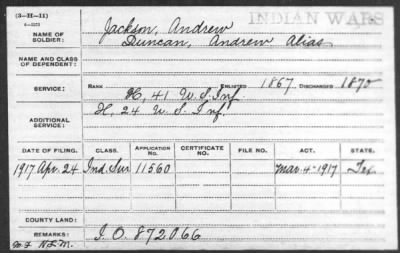 (3-H-11)
INDIAN WARS
NAME OF SOLDIER: Jackson, Andrew
Duncan, Andrew Alias
NAME AND CLASS OF DEPENDENT:
SERVICE: RANK ENLISTED 1867, DISCHARGED 1870
H, 41 U.S. Inf
ADDITIONAL SERVICE: H, 24 U.S. Inf.
DATE OF FILING. CLASS. APPLICATION NO. CERTIFICATE NO. FILE NO. ACT. STATE.
1917 Apr. 24 Ind. Sur 11560 Mar-4-1917 Tex.
COUNTY LAND:
REMARKS: I.O. 872066